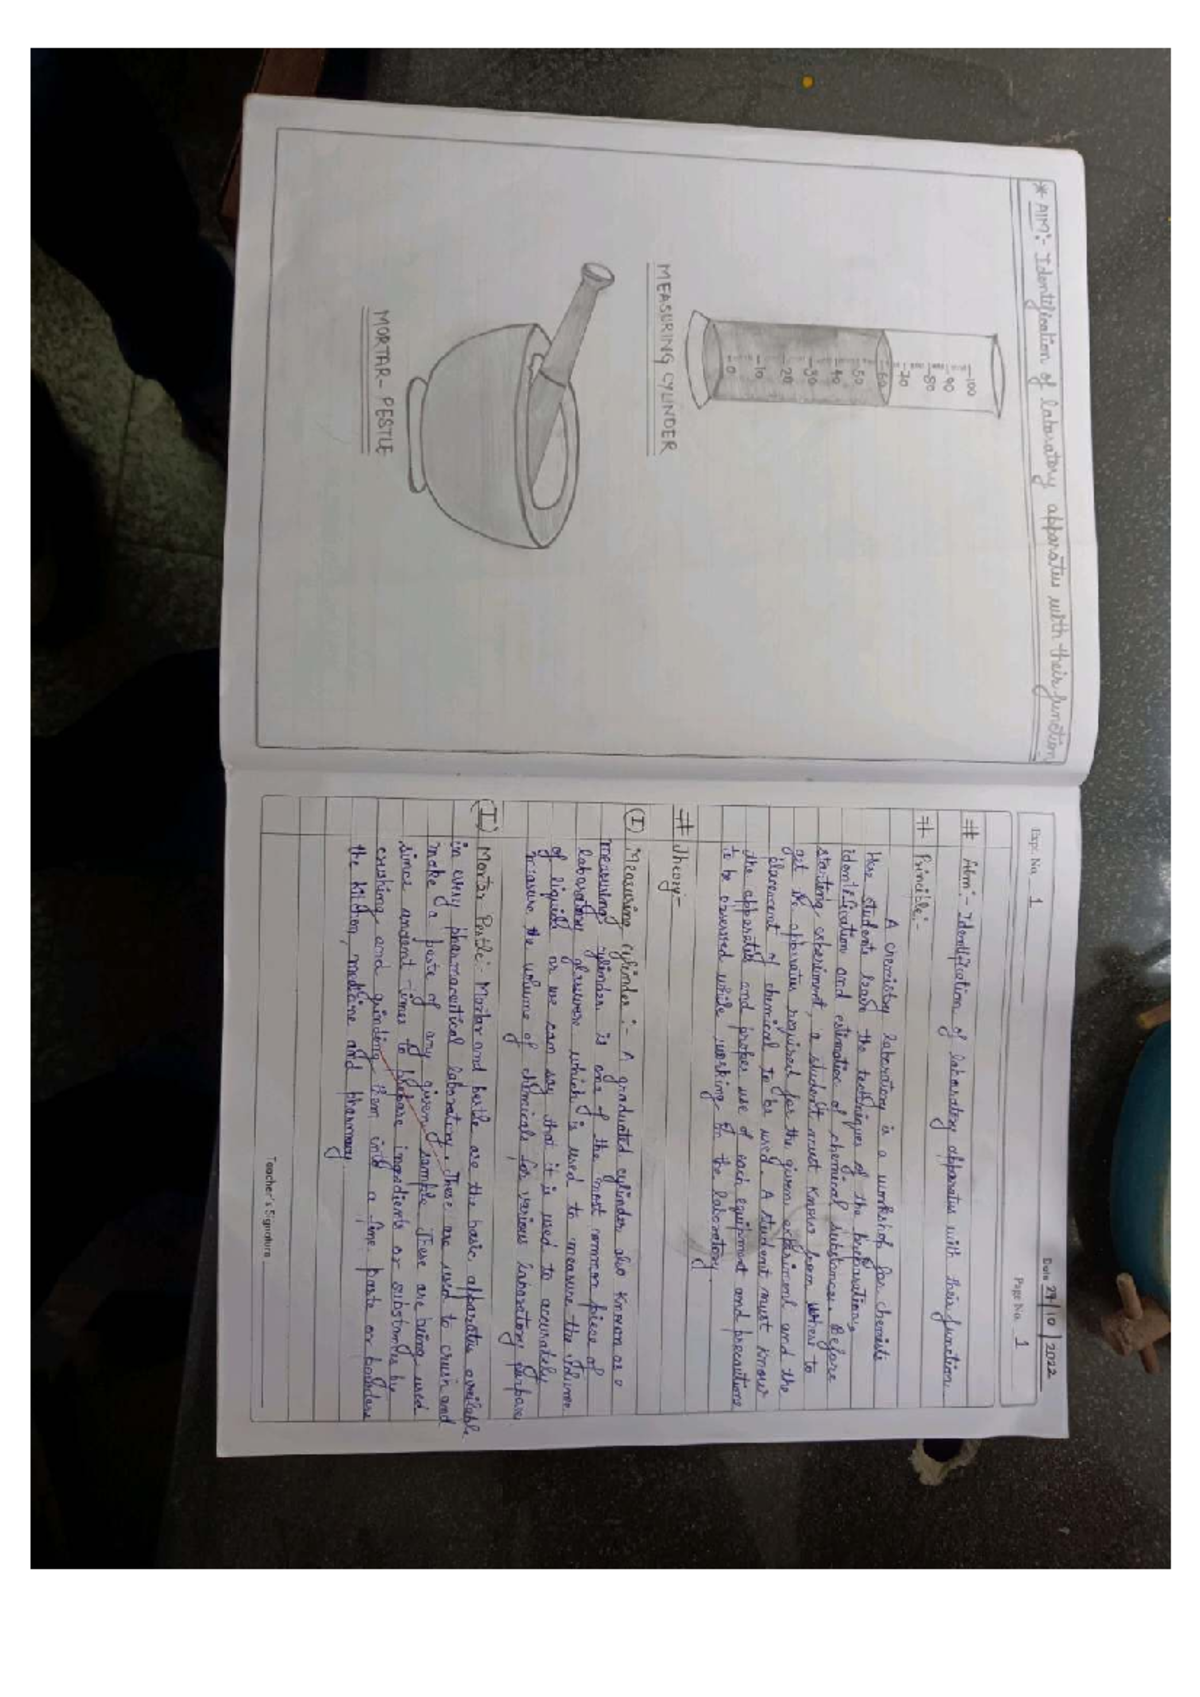 * AIM:- Identification of laboratory apparatus with their function
-100
-90
-80
-70
-60
-50
-40
-30
-20
-10
-0
MEASURING CYLINDER
MORTAR-PESTLE
Expt. No. 1
Date 29/10/2022
Page No. 1
# Aim:- Identification of laboratory apparatus with their function.
# Principle:-
A chemistry laboratory is a workshop for chemists
Here students learn the techniques of the preparation,
identification and estimation of chemical substance. Before
starting experiment, a student must know from where to
get the apparatus required for the given experiment and the
placement of chemical to be used. A student must know
the apparatus and proper use of each equipment and precautions
to be observed while working in the laboratory.
# Theory:-
(I) Measuring cylinder :- A graduated cylinder also known as a
measuring cylinder is one of the most common piece of
laboratory glassware which is used to measure the volume
of liquids or we can say that it is used to accurately
measure the volume of chemicals for various laboratory purpose.
(I) Mortar Pestle:- Mortar and pestle are the basic apparatus available
in every pharmaceutical laboratory. These are used to crush and
make a paste of any given sample. These are being used
since ancient times to prepare ingredients or substances by
crushing and grinding them into a fine paste or powder
the kitchen, medicine and pharmacy.
Teacher's Signature